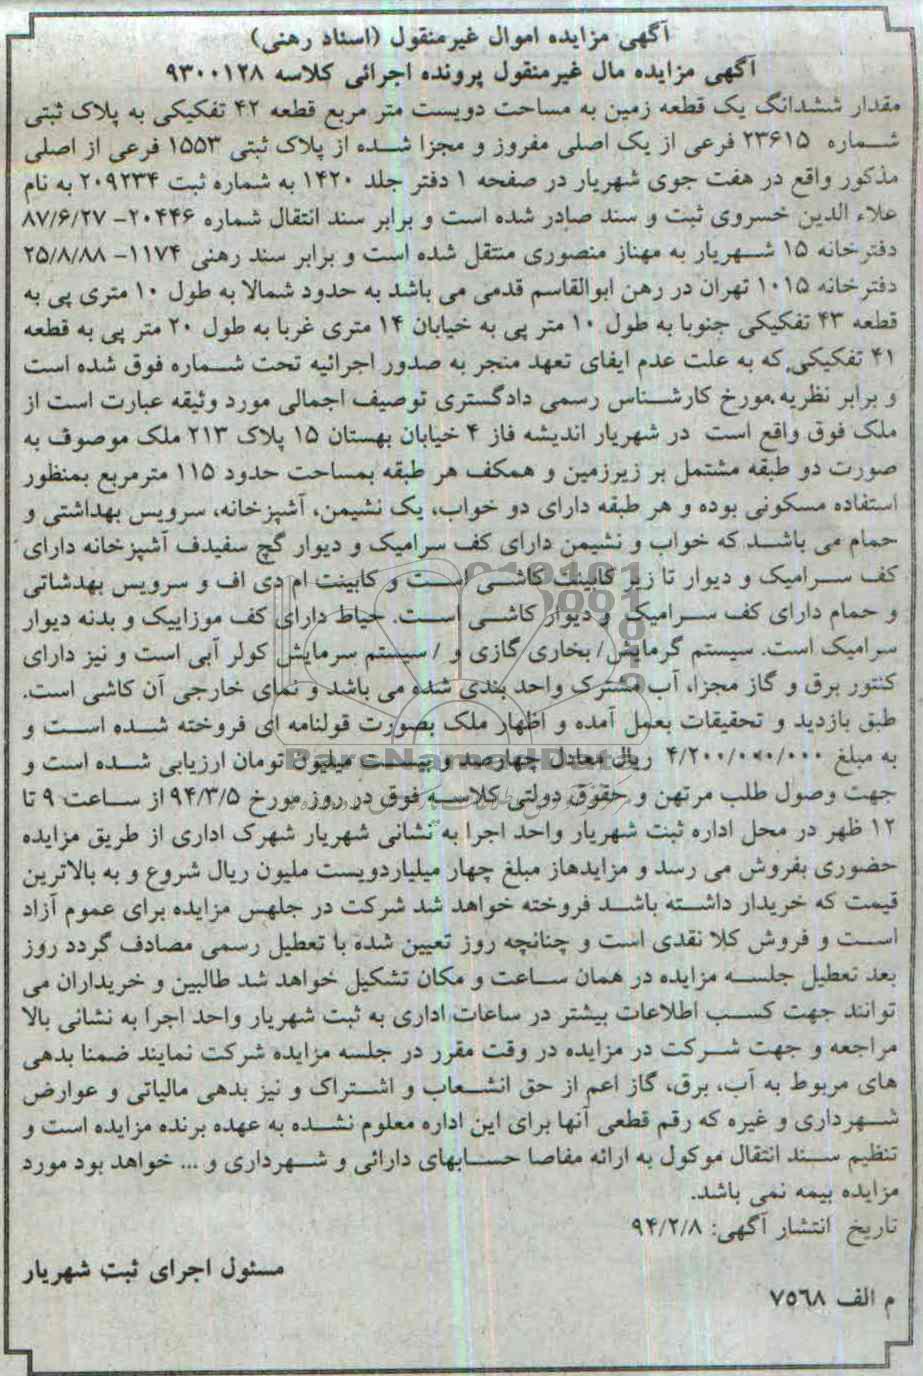 آگهی مزایده اموال غیرمنقول (اسناد رهنی)
آگهی مزایده مال غیرمنقول پرونده اجرائی کلاسه ۹۳۰۰۱۲۸
مقدار ششدانگ یک قطعه زمین به مساحت دویست متر مربع قطعه ۴۲ تفکیکی به پلاک ثبتی
شماره ۲۳۶۱۵ فرعی از یک اصلی مفروز و مجزا شده از پلاک ثبتی ۱۵۵۳ فرعی از اصلی
مذکور واقع در هفت جوی شهریار در صفحه ۱ دفتر جلد ۱۴۲۰ به شماره ثبت ۲۰۹۲۳۴ به نام
علاء الدین خسروی ثبت و سند صادر شده است و برابر سند انتقال شماره ۲۰۴۴۶- ۸۷/۶/۲۷
دفترخانه ۱۵ شهریار به مهناز منصوری منتقل شده است و برابر سند رهنی ۱۱۷۴- ۲۵/۸/۸۸
دفترخانه ۱۰۱۵ تهران در رهن ابوالقاسم قدمی می باشد به حدود شمالا به طول ۱۰ متری پی به
قطعه ۴۳ تفکیکی جنوبا به طول ۱۰ متر پی به خیابان ۱۴ متری غربا به طول ۲۰ متر پی به قطعه
۴۱ تفکیکی که به علت عدم ایفای تعهد منجر به صدور اجرائیه تحت شماره فوق شده است
و برابر نظریه مورخ کارشناس رسمی دادگستری توصیف اجمالی مورد وثیقه عبارت است از
ملک فوق واقع است در شهریار اندیشه فاز ۴ خیابان بهستان ۱۵ پلاک ۲۱۳ ملک موصوف به
صورت دو طبقه مشتمل بر زیرزمین و همکف هر طبقه بمساحت حدود ۱۱۵ مترمربع بمنظور
استفاده مسکونی بوده و هر طبقه دارای دو خواب، یک نشیمن، آشپزخانه، سرویس بهداشتی و
حمام می باشد که خواب و نشیمن دارای کف سرامیک و دیوار گچ سفیدف آشپزخانه دارای
کف سرامیک و دیوار تا زیر کابینت کاشی است و کابینت ام دی اف و سرویس بهدشاتی
و حمام دارای کف سرامیک و دیوار کاشی است. حیاط دارای کف موزاییک و بدنه دیوار
سرامیک است. سیستم گرمایش/ بخاری گازی و / سیستم سرمایش کولر آبی است و نیز دارای
کنتور برق و گاز مجزا، آب مشترک واحد بندی شده می باشد و نمای خارجی آن کاشی است.
طبق بازدید و تحقیقات بعمل آمده و اظهار ملک بصورت قولنامه ای فروخته شده است و
به مبلغ ۴/۲۰۰/۰۰۰/۰۰۰ ریال معادل چهارصد و بیست میلیون تومان ارزیابی شده است و
جهت وصول طلب مرتهن و حقوق دولتی کلاسه فوق در روز مورخ ۹۴/۳/۵ از ساعت ۹ تا
۱۲ ظهر در محل اداره ثبت شهریار واحد اجرا به نشانی شهریار شهرک اداری از طریق مزایده
حضوری بفروش می رسد و مزایدهاز مبلغ چهار میلیاردویست ملیون ریال شروع و به بالاترین
قیمت که خریدار داشته باشد فروخته خواهد شد شرکت در جلهس مزایده برای عموم آزاد
است و فروش کلا نقدی است و چنانچه روز تعیین شده با تعطیل رسمی مصادف گردد روز
بعد تعطیل جلسه مزایده در همان ساعت و مکان تشکیل خواهد شد طالبین و خریداران می
توانند جهت کسب اطلاعات بیشتر در ساعات اداری به ثبت شهریار واحد اجرا به نشانی بالا
مراجعه و جهت شرکت در مزایده در وقت مقرر در جلسه مزایده شرکت نمایند ضمنا بدهی
های مربوط به آب، برق، گاز اعم از حق انشعاب و اشتراک و نیز بدهی مالیاتی و عوارض
شهرداری و غیره که رقم قطعی آنها برای این اداره معلوم نشده به عهده برنده مزایده است و
تنظیم سند انتقال موکول به ارائه مفاصا حسابهای دارائی و شهرداری و ... خواهد بود مورد
مزایده بیمه نمی باشد.
تاریخ انتشار آگهی: ۹۴/۲/۸
مسئول اجرای ثبت شهریار
م الف ۷۵۶۸
ParsNamadData